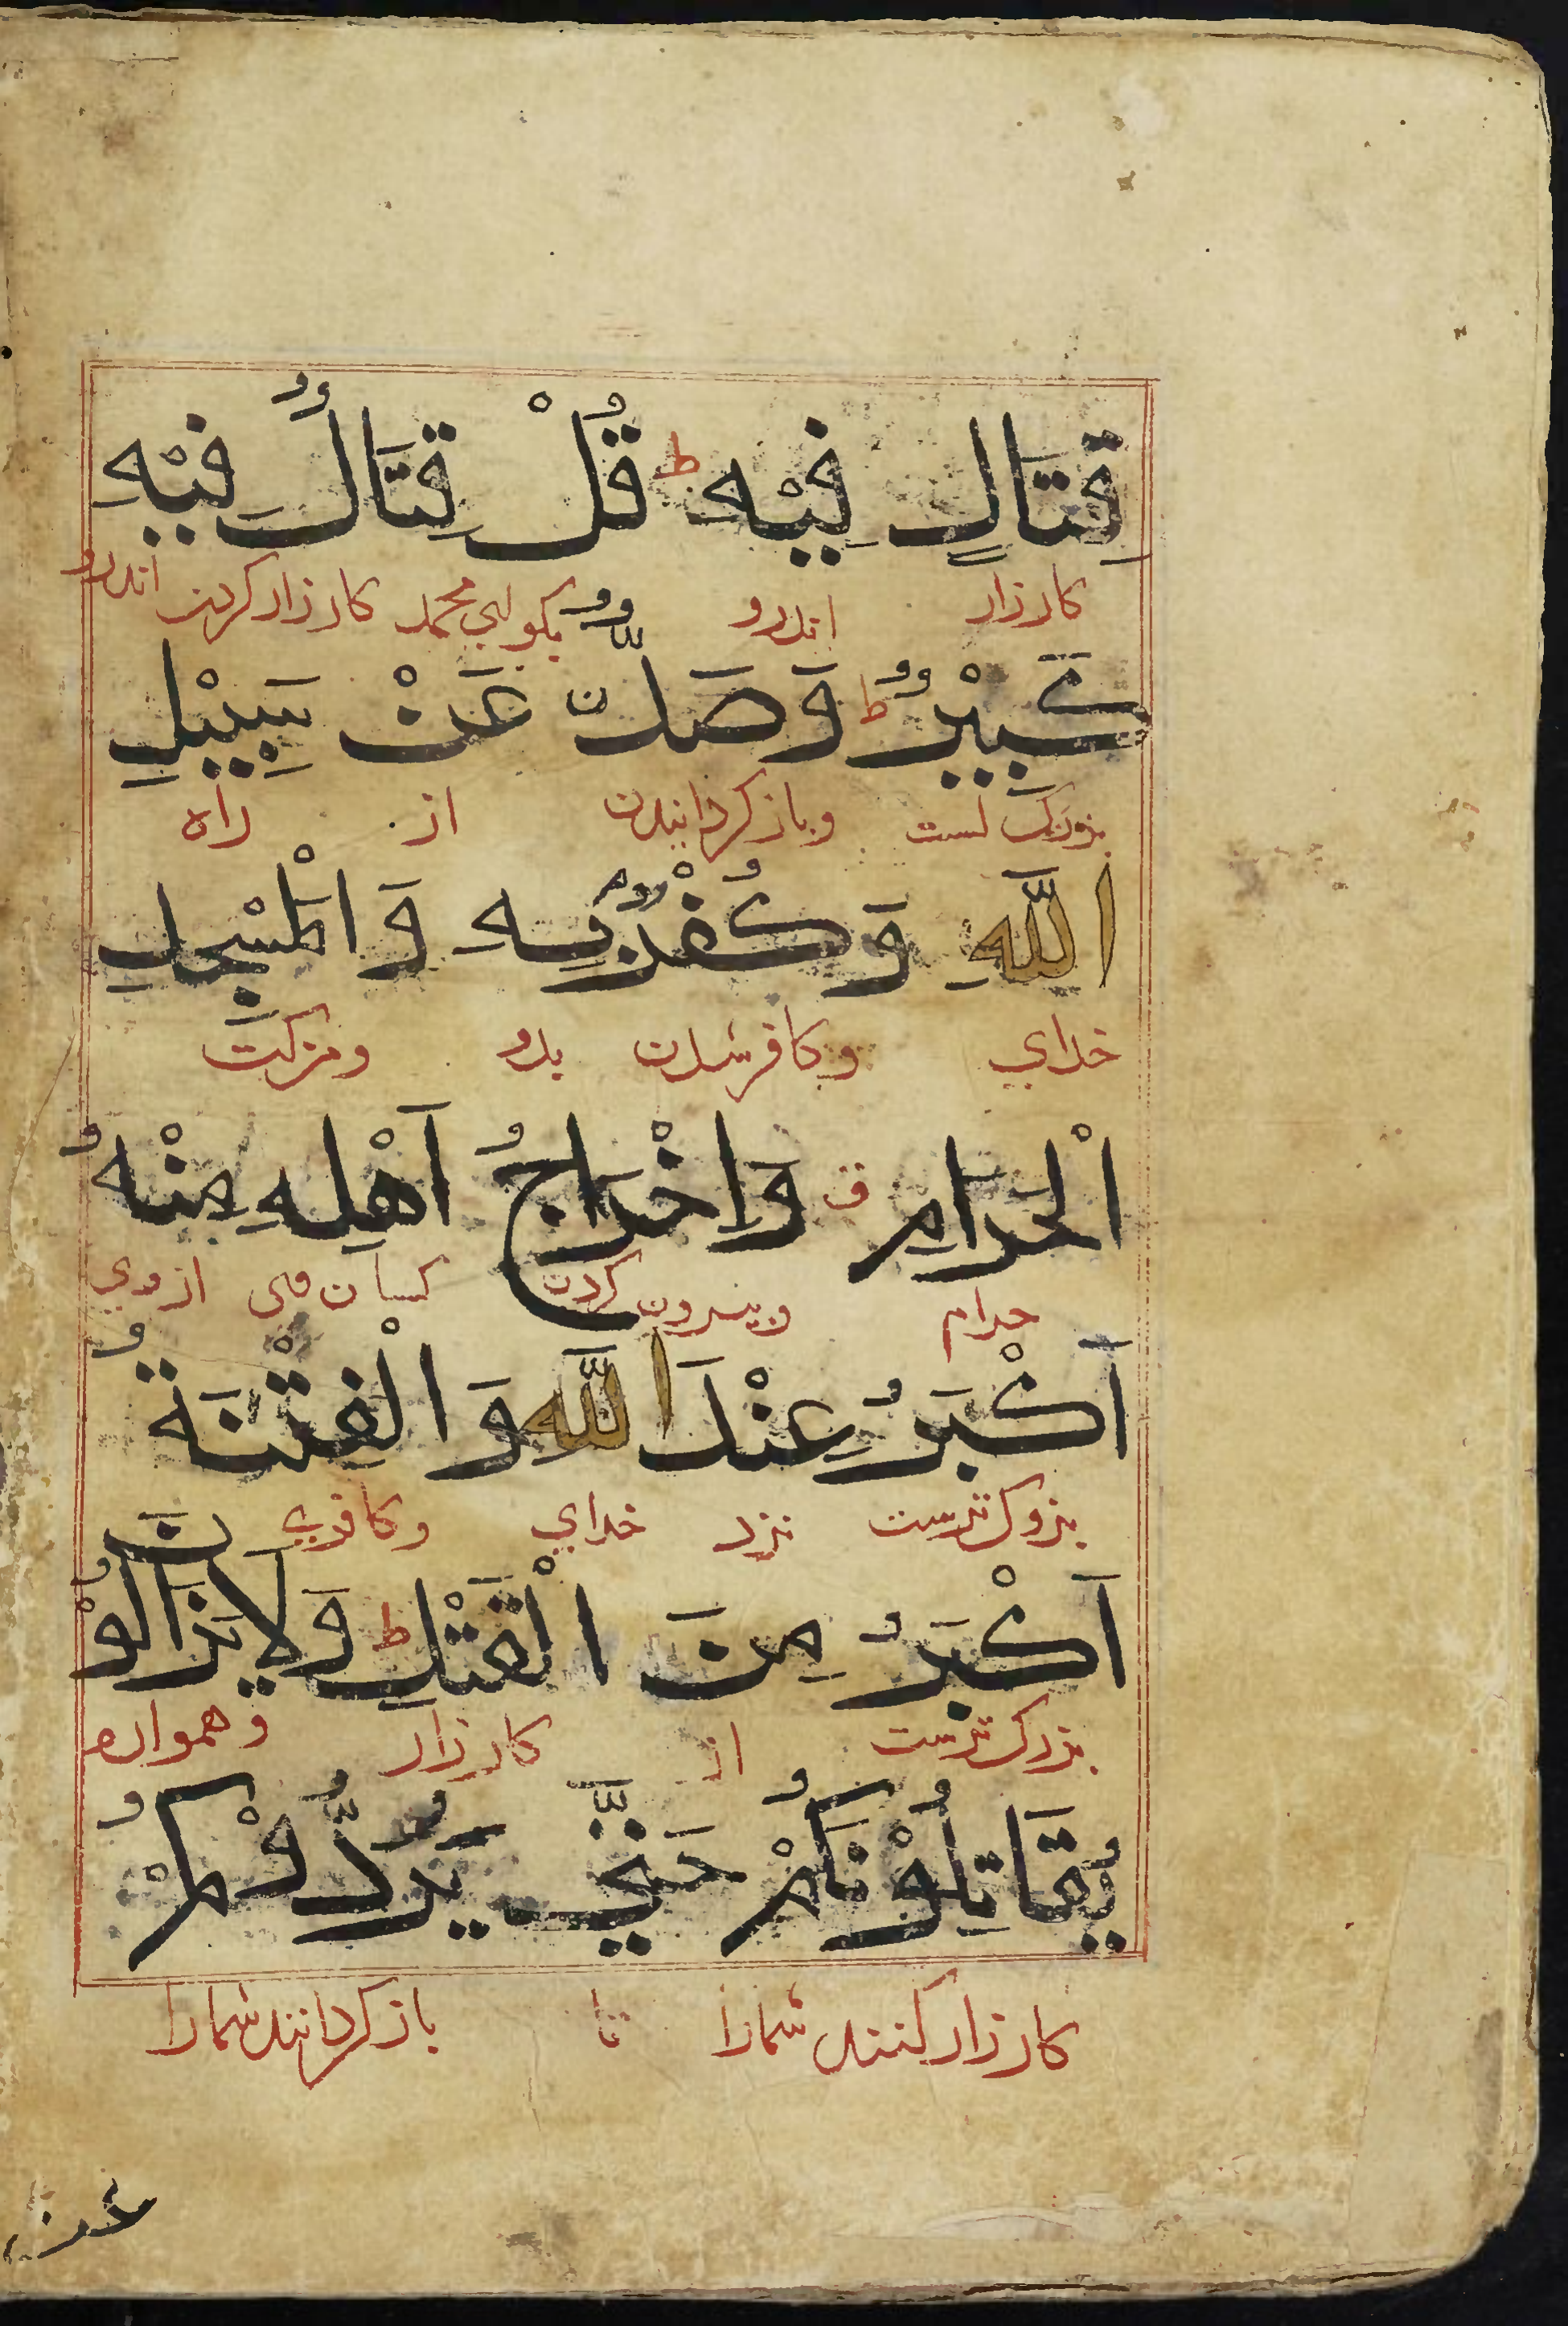 قِتَالٍ فِيْهِ ط قُلْ قِتَالٌ فِيْهِ
کارزار اندرو بکو ای محمد کارزار کردن اندرو
كَبِيْرٌ ط وَصَدٌّ عَنْ سَبِيْلِ
بزرک است وباز کردانیدن از راه
اللّٰهِ وَكُفْرٌ بِهِ وَالْمَسْجِدِ
خدای وکافر شدن بدو ومزکت
الْحَرَامِ ق وَاِخْرَاجُ اَهْلِهِ مِنْهُ
حرام وبیرون کردن کسان وی از وی
اَكْبَرُ عِنْدَ اللّٰهِ وَالْفِتْنَةُ
بزرک ترست نزد خدای وکافری
اَكْبَرُ مِنَ الْقَتْلِ ط وَلَا يَزَالُوْنَ
بزرک ترست از کارزار وهمواره
يُقَاتِلُوْنَكُمْ حَتّٰي يَرُدُّوْكُمْ
کارزار کنند شمارا تا باز کردانند شمارا
عن